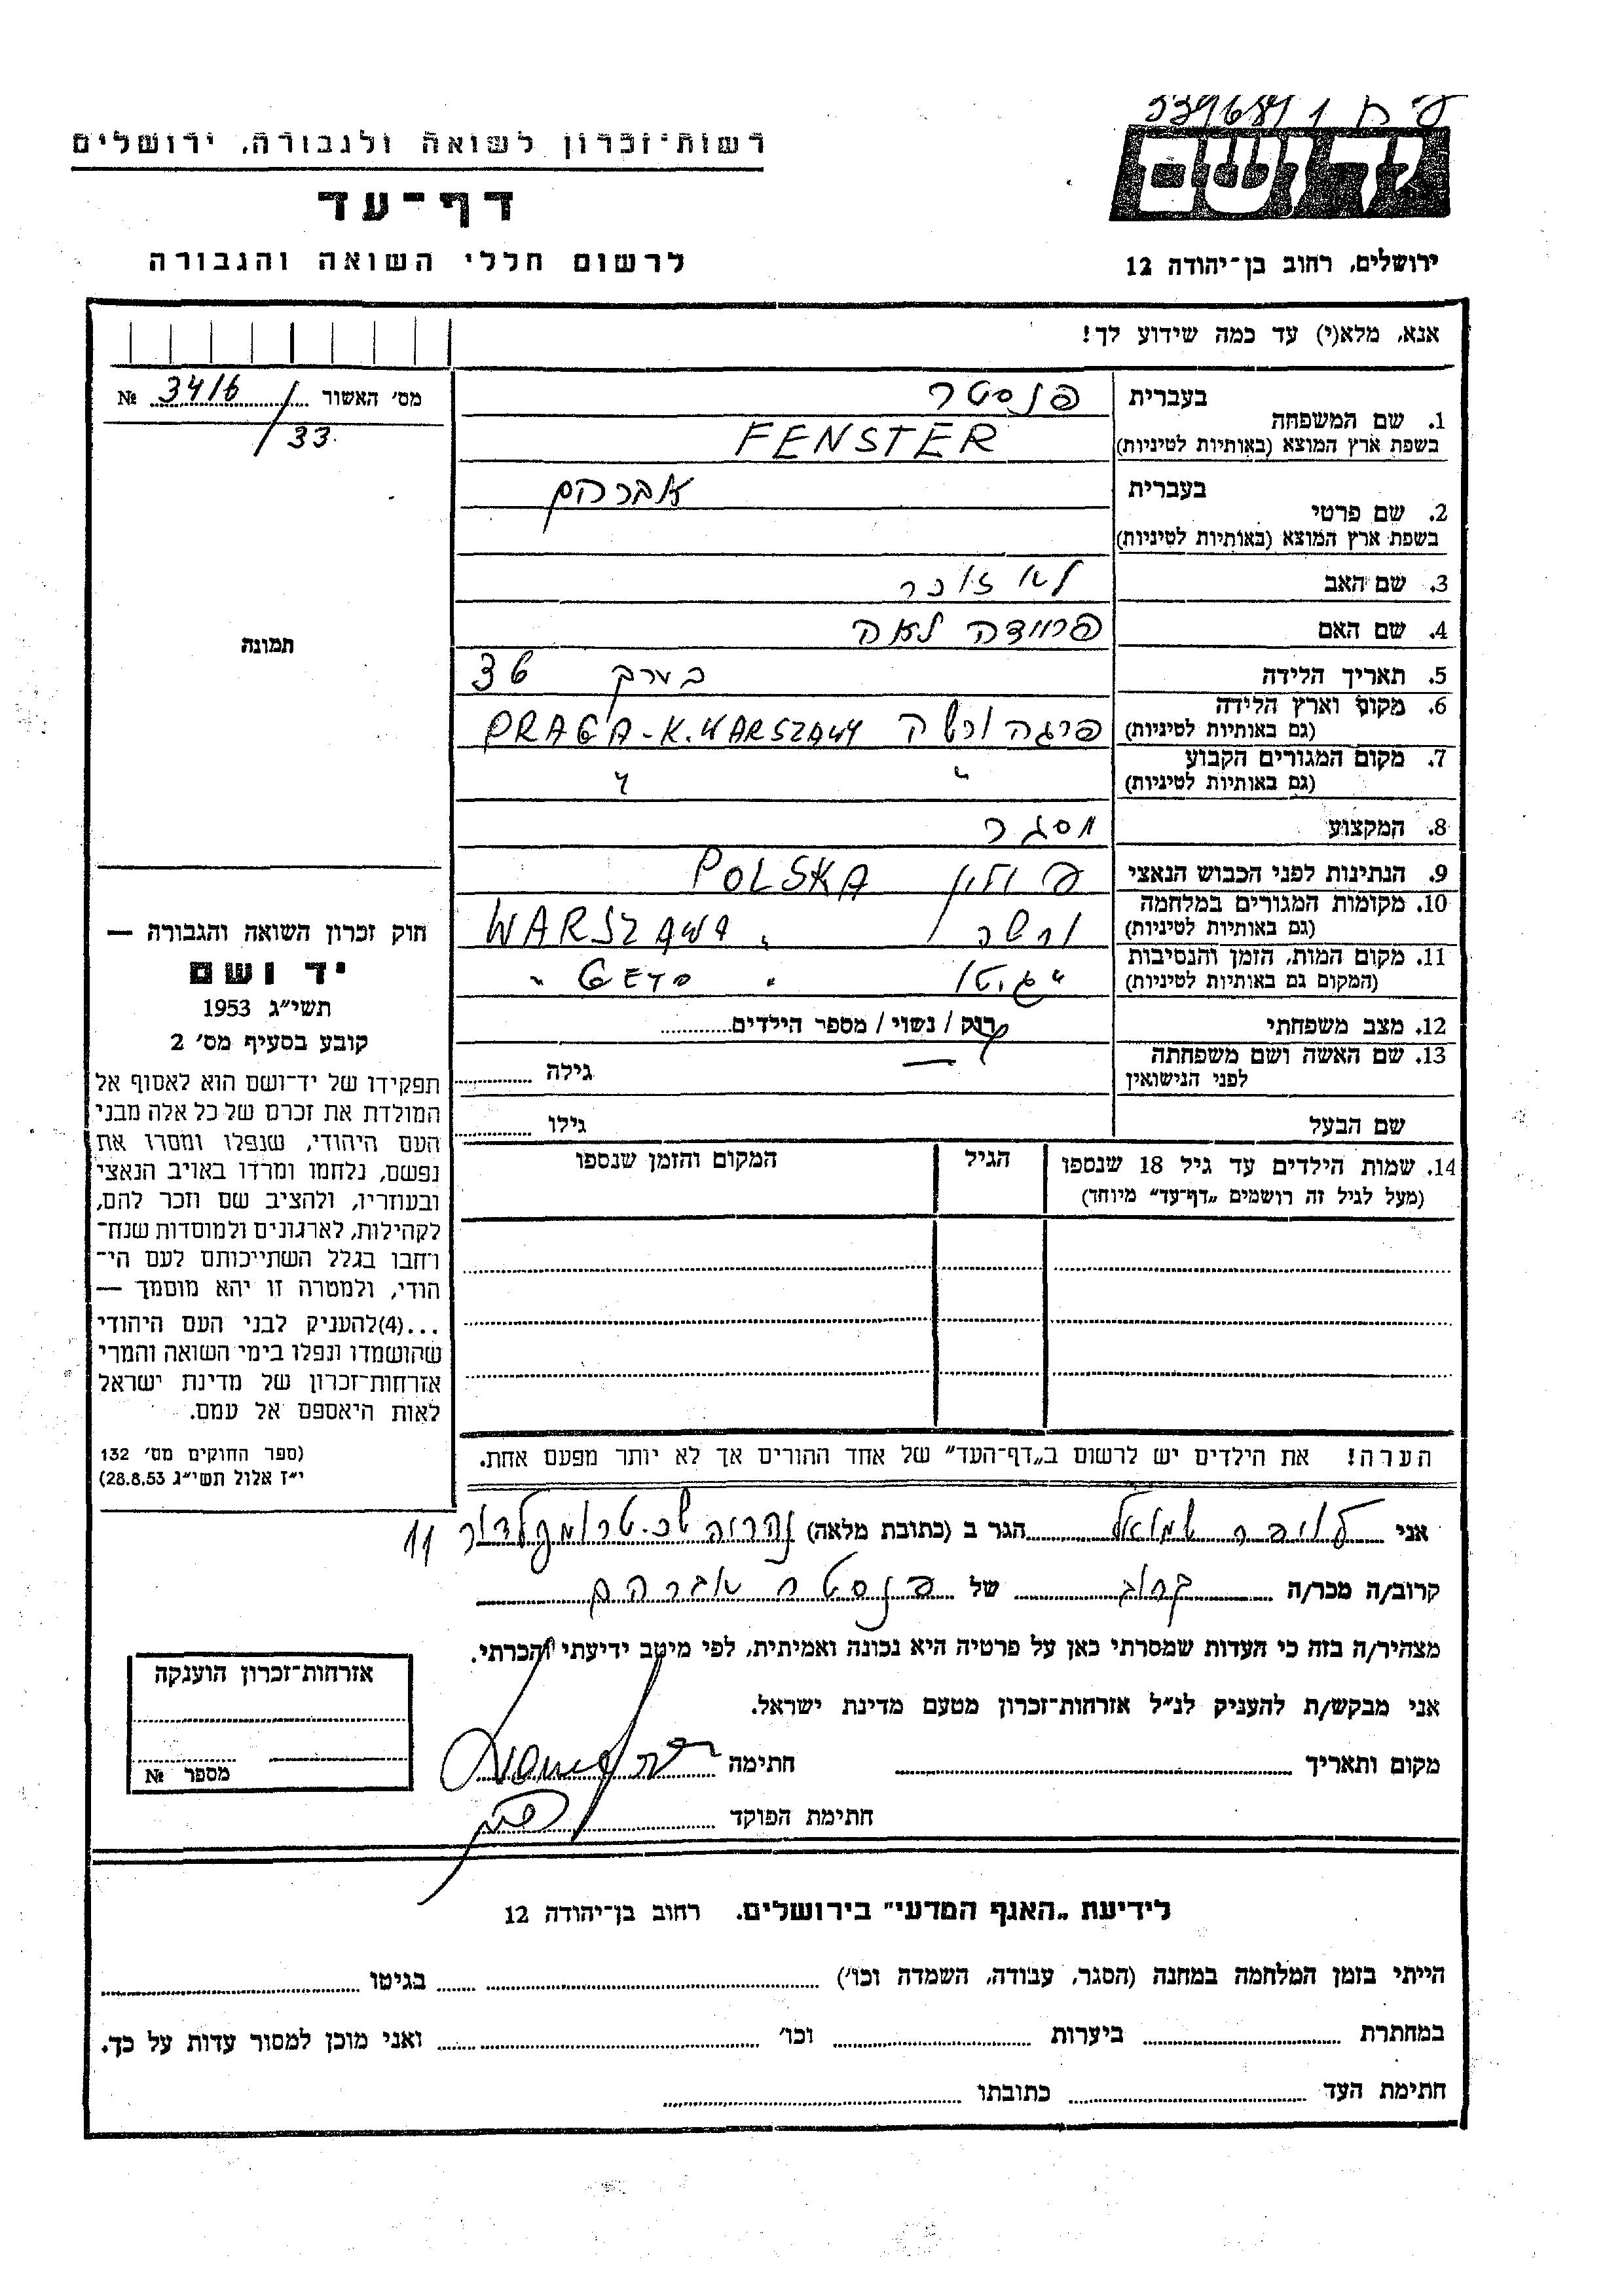 רשות־זכרון לשואה ולגבורה, ירושלים
דף־עד
לרשום חללי השואה והגבורה
ירושלים, רחוב בן־יהודה 12
אנא, מלא(י) עד כמה שידוע לך!
מס׳ האשור 3416 №
33
1. שם המשפחה בעברית פנסטר
בשפת ארץ המוצא (באותיות לטיניות) FENSTER
2. שם פרטי בעברית אברהם
בשפת ארץ המוצא (באותיות לטיניות)
3. שם האב לא זוכר
4. שם האם לאה
5. תאריך הלידה בערך 36
6. מקום וארץ הלידה (גם באותיות לטיניות) פרגה ורשה PRAGA-K.WARSZAWY
7. מקום המגורים הקבוע (גם באותיות לטיניות) " "
8. המקצוע מסגר
9. הנתינות לפני הכבוש הנאצי פולין POLSKA
10. מקומות המגורים במלחמה (גם באותיות לטיניות) ורשה WARSZAWA
11. מקום המות, הזמן והנסיבות (המקום גם באותיות לטיניות) " גיטו " GETO "
12. מצב משפחתי רוק / נשוי / מספר הילדים
13. שם האשה ושם משפחתה לפני הנישואין — גילה
שם הבעל גילו
14. שמות הילדים עד גיל 18 שנספו הגיל המקום והזמן שנספו
(מעל לגיל זה רושמים „דף־עד” מיוחד)
הערה! את הילדים יש לרשום ב„דף־העד” של אחד ההורים אך לא יותר מפעם אחת.
תמונה
חוק זכרון השואה והגבורה —
יד ושם
תשי״ג 1953
קובע בסעיף מס׳ 2
תפקידו של יד־ושם הוא לאסוף אל
המולדת את זכרם של כל אלה מבני
העם היהודי, שנפלו ומסרו את
נפשם, נלחמו ומרדו באויב הנאצי
ובעוזריו, ולהציב שם וזכר להם,
לקהילות, לארגונים ולמוסדות שנח־
רחבו בגלל השתייכותם לעם הי־
הודי, ולמטרה זו יהא מוסמך —
...(4)להעניק לבני העם היהודי
שהושמדו ונפלו בימי השואה והמרי
אזרחות־זכרון של מדינת ישראל
לאות היאספם אל עמם.
(ספר החוקים מס׳ 132
י״ז אלול תשי״ג 28.8.53)
אני שמואל הגר ב (כתובת מלאה) נהריה 11
קרוב/ה מכר/ה קרוב של פנסטר אברהם
מצהיר/ה בזה כי העדות שמסרתי כאן על פרטיה היא נכונה ואמיתית, לפי מיטב ידיעתי והכרתי.
אני מבקש/ת להעניק לנ״ל אזרחות־זכרון מטעם מדינת ישראל.
מקום ותאריך חתימה
חתימת הפוקד
אזרחות־זכרון הוענקה
מספר №
לידיעת „האגף המדעי” בירושלים. רחוב בן־יהודה 12
הייתי בזמן המלחמה במחנה (הסגר, עבודה, השמדה וכו׳) בגיטו
במחתרת ביערות וכו׳ ואני מוכן למסור עדות על כך.
חתימת העד כתובתו